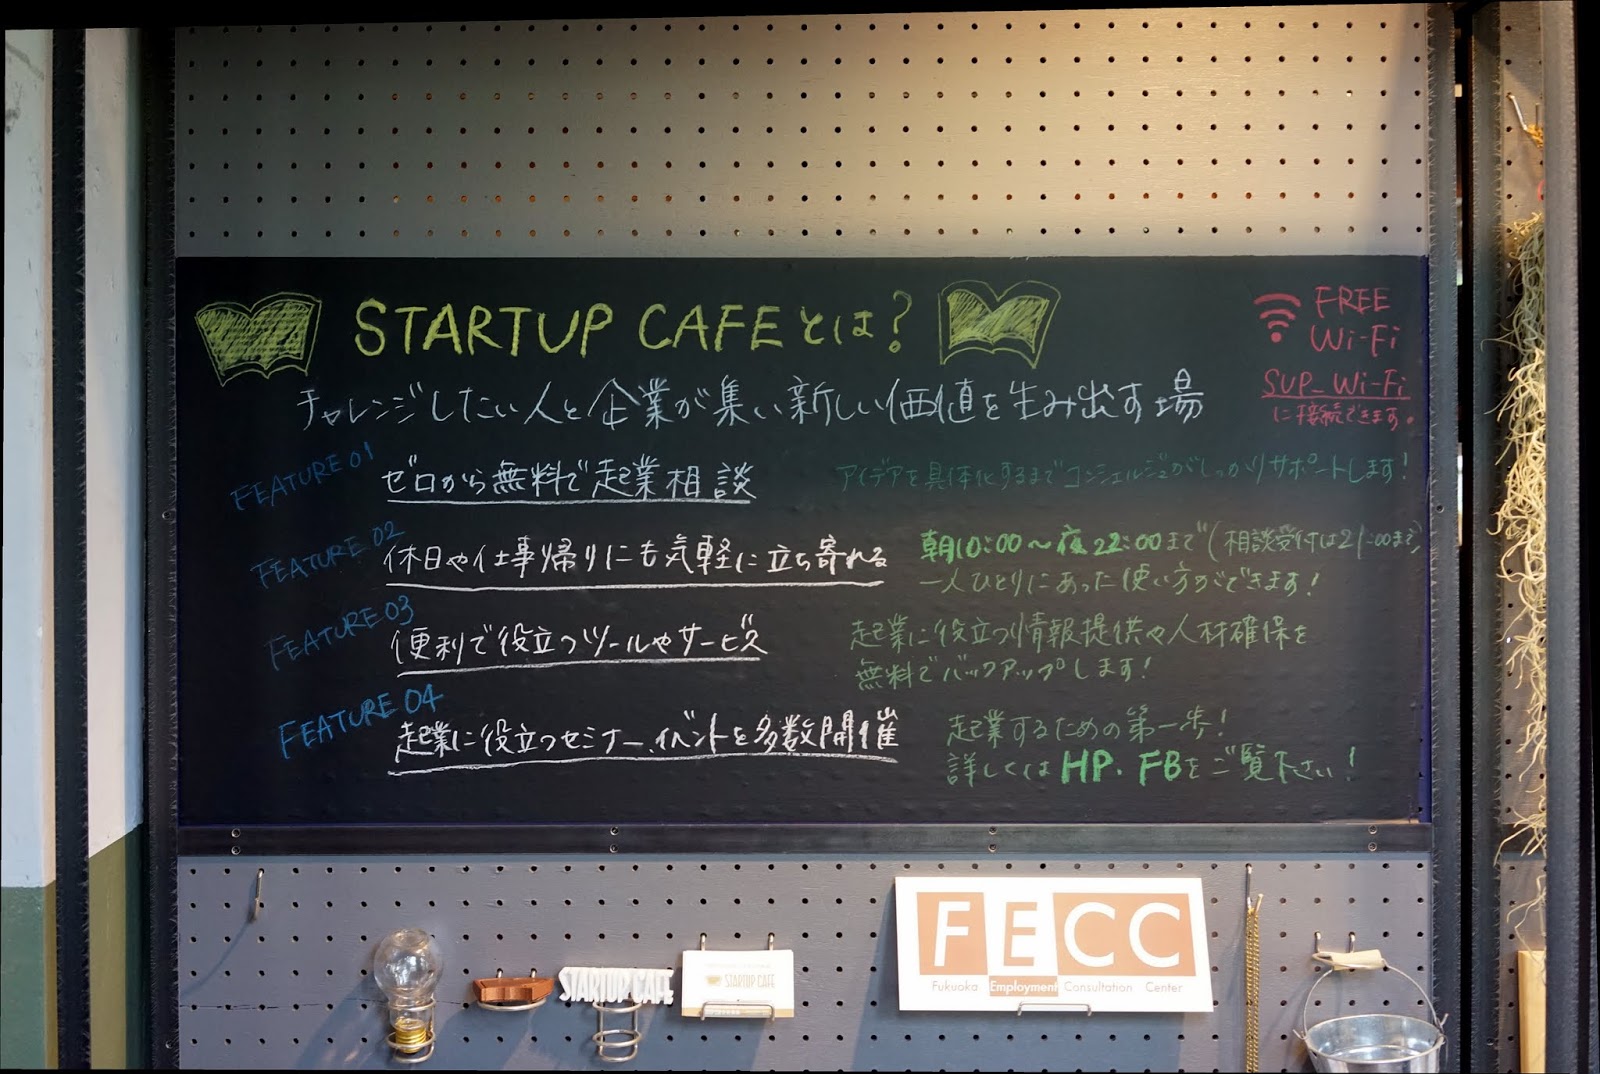 STARTUP CAFEとは?
FREE
Wi-Fi
SUP_Wi-Fi
に接続できます。
チャレンジしたい人と企業が集い新しい価値を生み出す場
FEATURE 01
ゼロから無料で起業相談
アイデアを具体化するまでコンシェルジュがしっかりサポートします!
FEATURE 02
休日や仕事帰りにも気軽に立ち寄れる
朝10:00〜夜22:00まで(相談受付は21:00まで)
一人ひとりにあった使い方ができます!
FEATURE 03
便利で役立つツールやサービス
起業に役立つ情報提供や人材確保を
無料でバックアップします!
FEATURE 04
起業に役立つセミナー、イベントを多数開催
起業するための第一歩!
詳しくはHP、FBをご覧下さい!
STARTUP CAFE
STARTUP CAFE
FECC
Fukuoka Employment Consultation Center